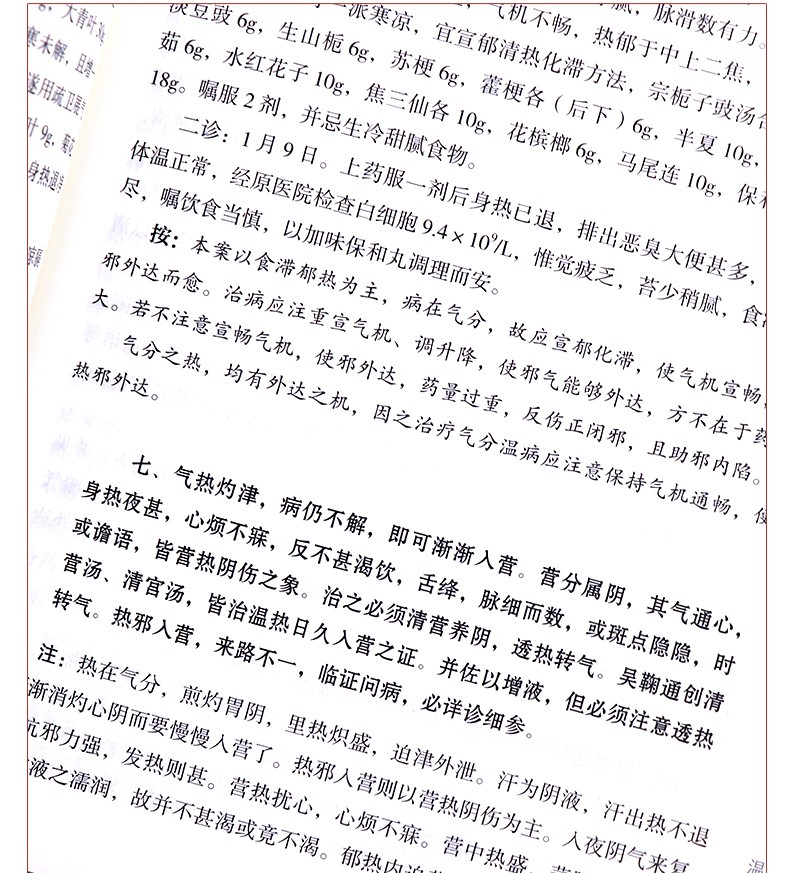 腻，脉滑数有力。
派寒凉，宜宣郁清热化滞方法，宗栀子豉汤
气机不畅，热郁于中上二焦，
淡豆豉 6g，生山栀 6g，苏梗 6g，藿梗各（后下）6g，半夏 10g，
茹 6g，水红花子 10g，焦三仙各 10g，花槟榔 6g，马尾连 10g，保和
18g。嘱服 2 剂，并忌生冷甜腻食物。
二诊：1 月 9 日。上药服一剂后身热已退，排出恶臭大便甚多，
体温正常，经原医院检查白细胞 9.4 × 10⁹/L，惟觉疲乏，苔少稍腻，食
尽，嘱饮食当慎，以加味保和丸调理而安。
按：本案以食滞郁热为主，病在气分，故应宣郁化滞，使气机宣畅，
邪外达而愈。治病应注重宣气机、调升降，使邪气能够外达，方不在于药
大。若不注意宣畅气机，使邪外达，药量过重，反伤正闭邪，且助邪内陷。
气分之热，均有外达之机，因之治疗气分温病应注意保持气机通畅，使
热邪外达。
七、气热灼津，病仍不解，即可渐渐入营。营分属阴，其气通心，
身热夜甚，心烦不寐，反不甚渴饮，舌绛，脉细而数，或斑点隐隐，时
或谵语，皆营热阴伤之象。治之必须清营养阴，透热转气。吴鞠通创清
营汤、清宫汤，皆治温热日久入营之证。并佐以增液，但必须注意透热
转气。热邪入营，来路不一，临证问病，必详诊细参。
注：热在气分，煎灼胃阴，里热炽盛，迫津外泄。汗为阴液，汗出热不退
渐消灼心阴而要慢慢入营了。热邪入营则以营热阴伤为主。入夜阴气来复
抗邪力强，发热则甚。营热扰心，心烦不寐。营中热盛，
液之濡润，故并不甚渴或竟不渴。郁热内